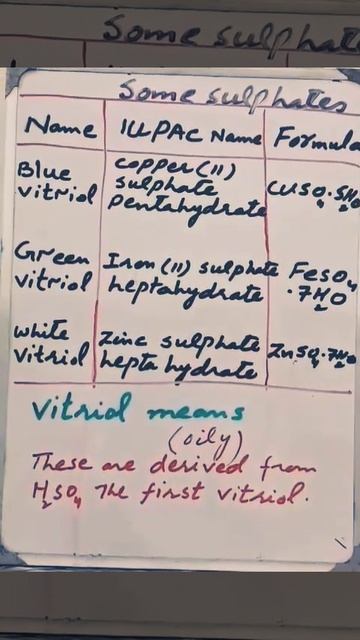 Some sulphates
Name IUPAC Name Formula
Blue vitriol copper(II) sulphate pentahydrate CuSO₄.5H₂O
Green vitriol Iron (II) sulphate heptahydrate FeSO₄ .7H₂O
white vitriol Zinc sulphate hepta hydrate ZnSO₄.7H₂O
vitriol means
(oily)
These are derived from
H₂SO₄ The first vitriol.